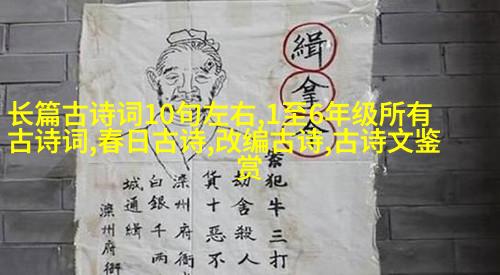 长篇古诗词10句左右,1至6年级所有
古诗词,春日古诗,改编古诗,古诗文鉴
赏
緝拿
案犯牛三打
劫舍殺人
貨十惡不
滦州府衙
白銀千两
城通緝
滦州府衙